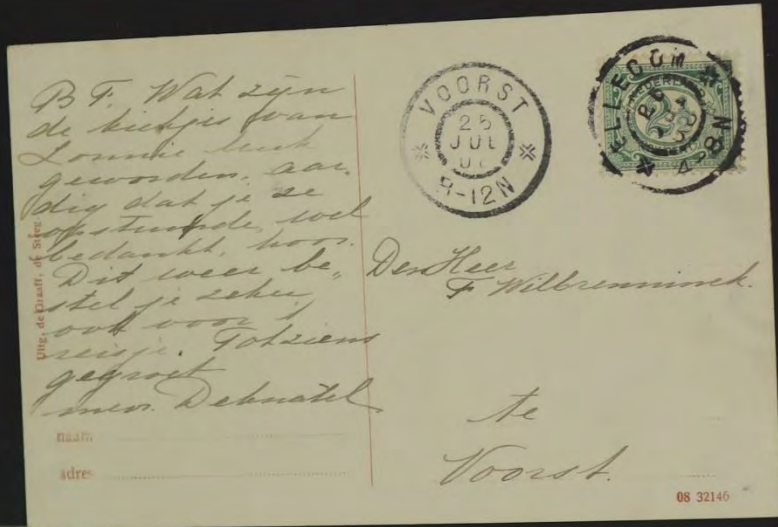 B F. Wat zijn
de kiekjes van
Lonnie leuk
geworden, aar-
dig dat je ze
opstuurde, wel
bedankt, hoor.
Dit weer be„
stel je zeker
ook voor 's
reisje. Tot ziens
gegroet
mevr. Debnatel
naam
adres
Uitg. de Graaff, de Steeg.
VOORST
25
JUL
8-12N
ELLECOM
4-8N
Den Heer
F Wilbrenninck.
te
Voorst.
08 32146